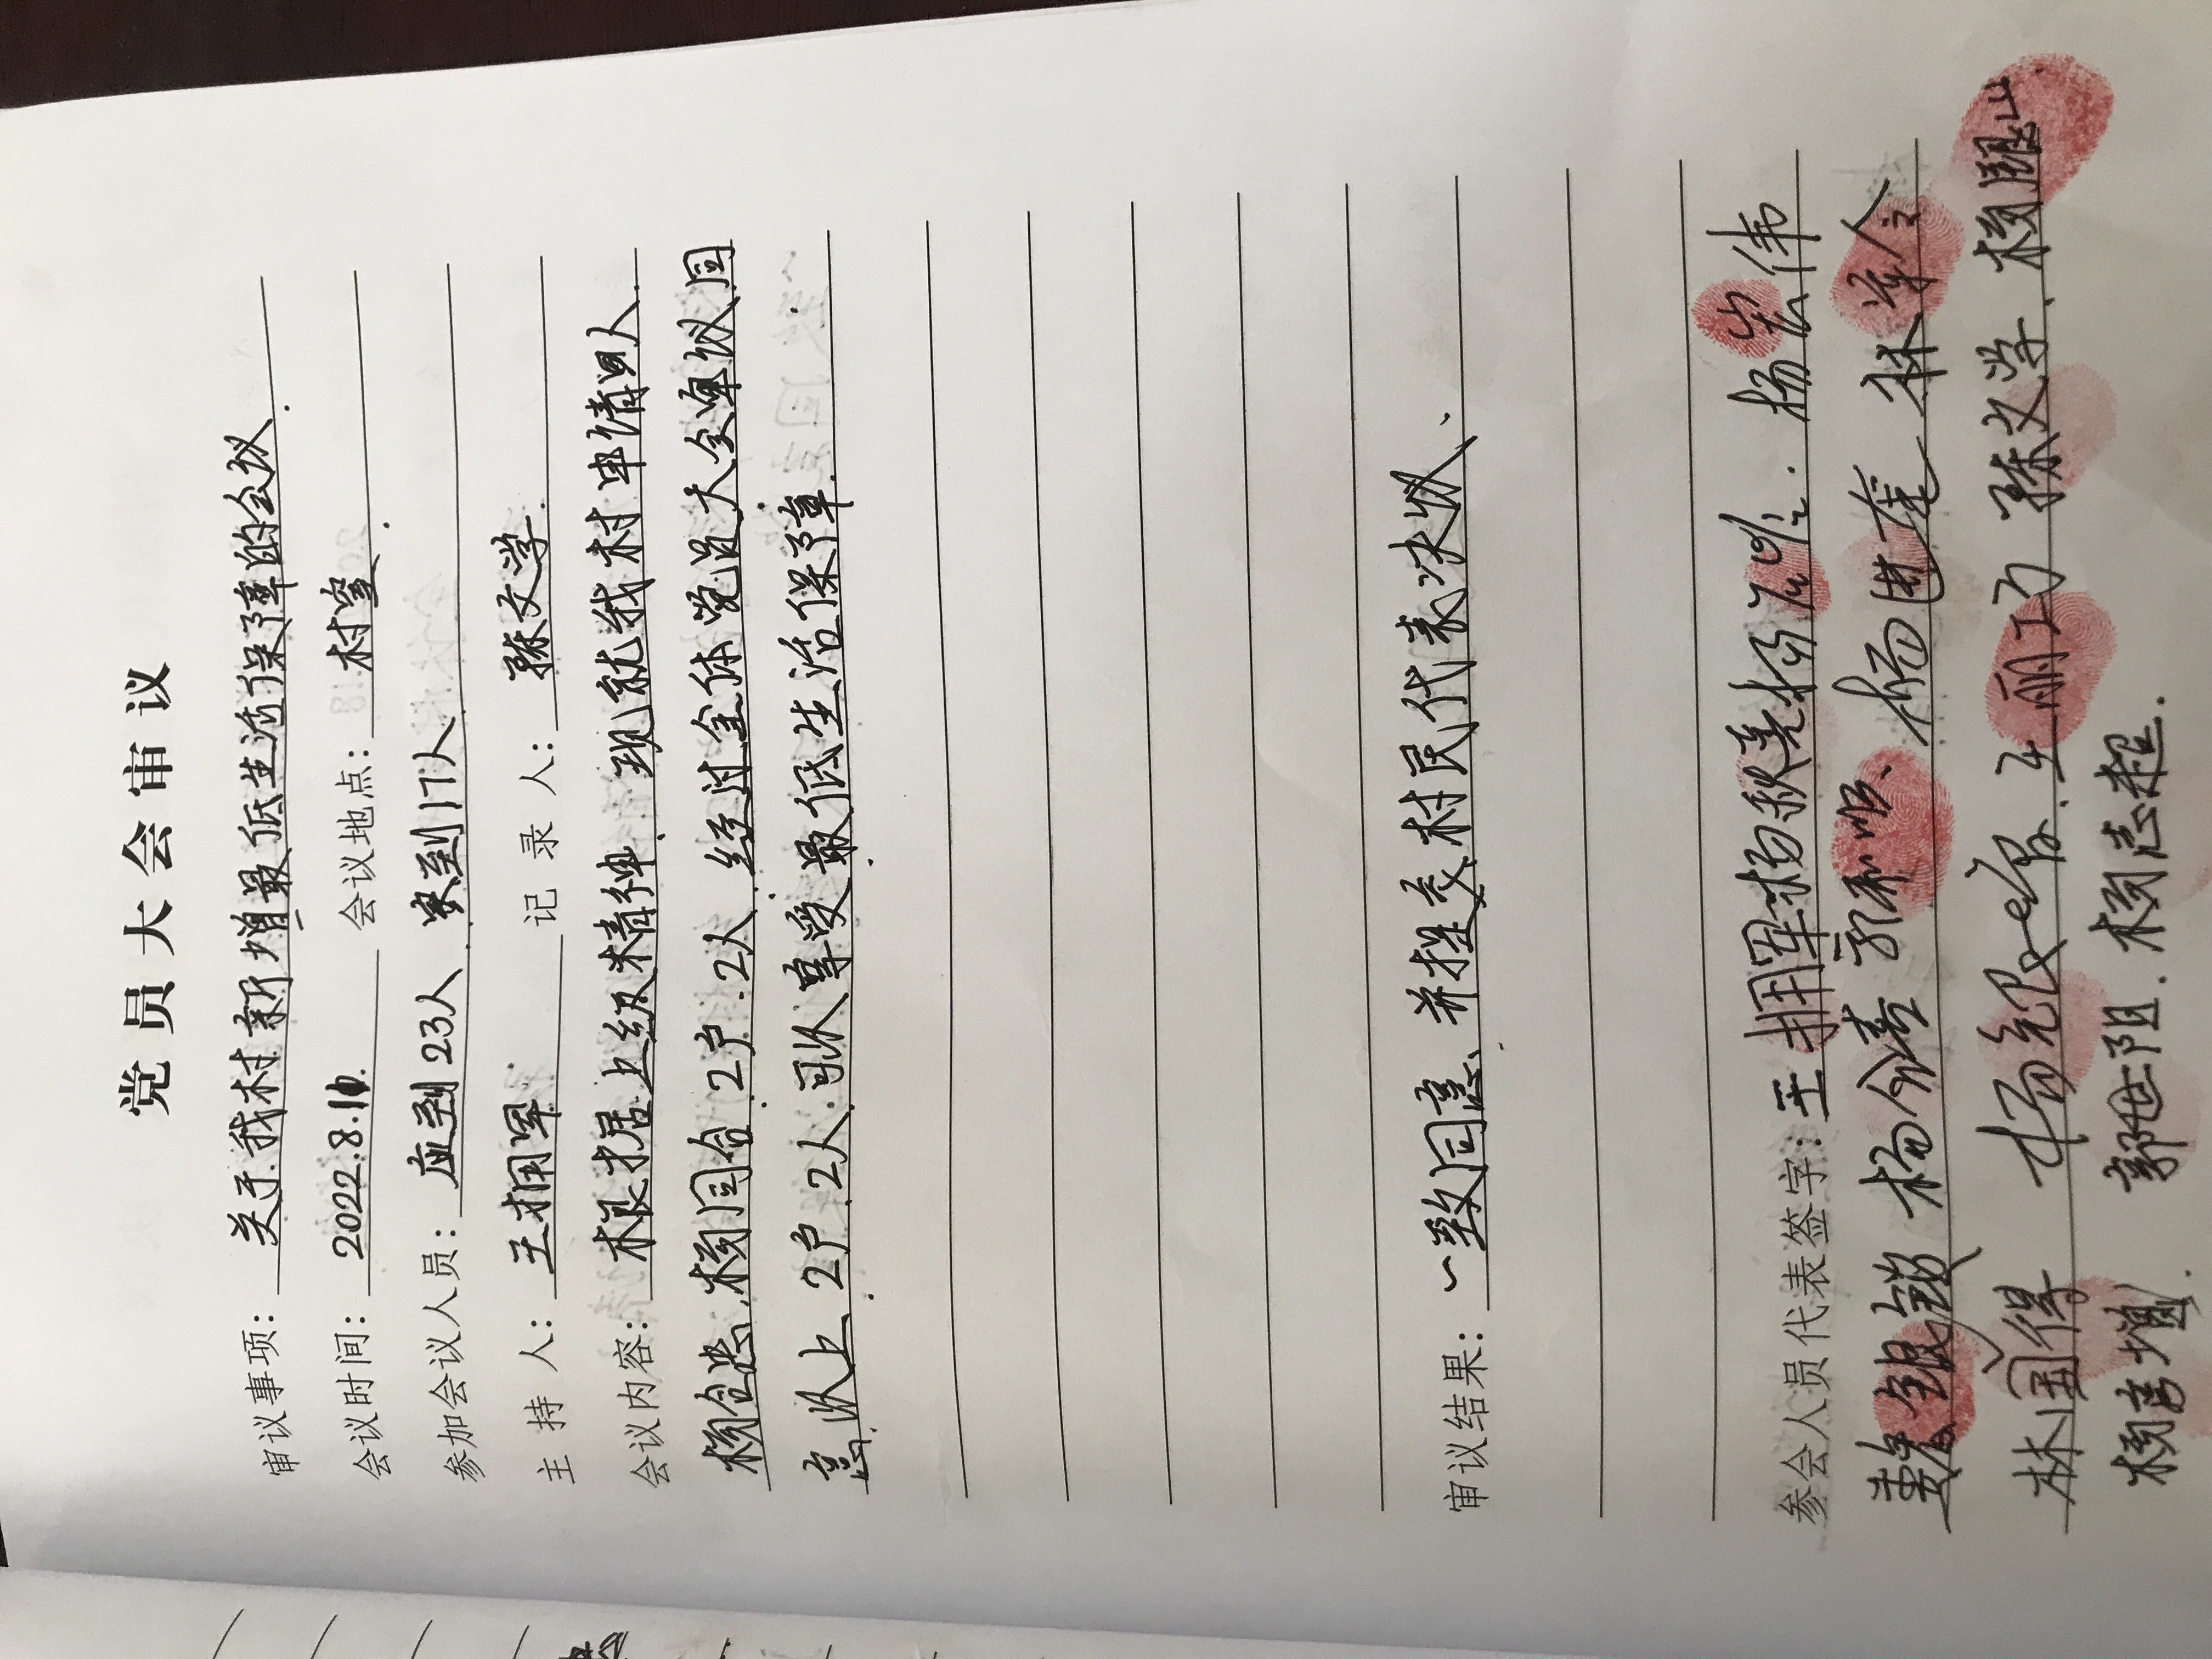 党员大会审议
审议事项：关于我村新增最低生活保障的会议.
会议时间：2022.8.10. 会议地点：村室.
参加会议人员：应到23人.实到17人.
主持人：王拥军 记录人：陈文学.
会议内容：根据上级精神、现就我村申请人.
杨合忠.杨同合.2户.2人.经过全体党员大会审议同
意.以上2户.2人.可以享受最低生活保障.
审议结果：一致同意、并提交村民代表决议、
参会人员代表签字：王拥军 杨秋亮 杨 杨宏伟
魏锟锁 杨 喜 郭和顺 杨进奎 林军令
林国得 杨 王丽巧 陈文学. 杨 山
杨喜增. 郭世阳. 杨志超.